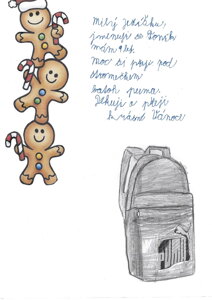 Milý Ježíšku,
jmenuji se Doník
mám 9 let
moc si přeji pod
stromečkem
batoh puma.
Děkuji a přeji
krásné Vánoce